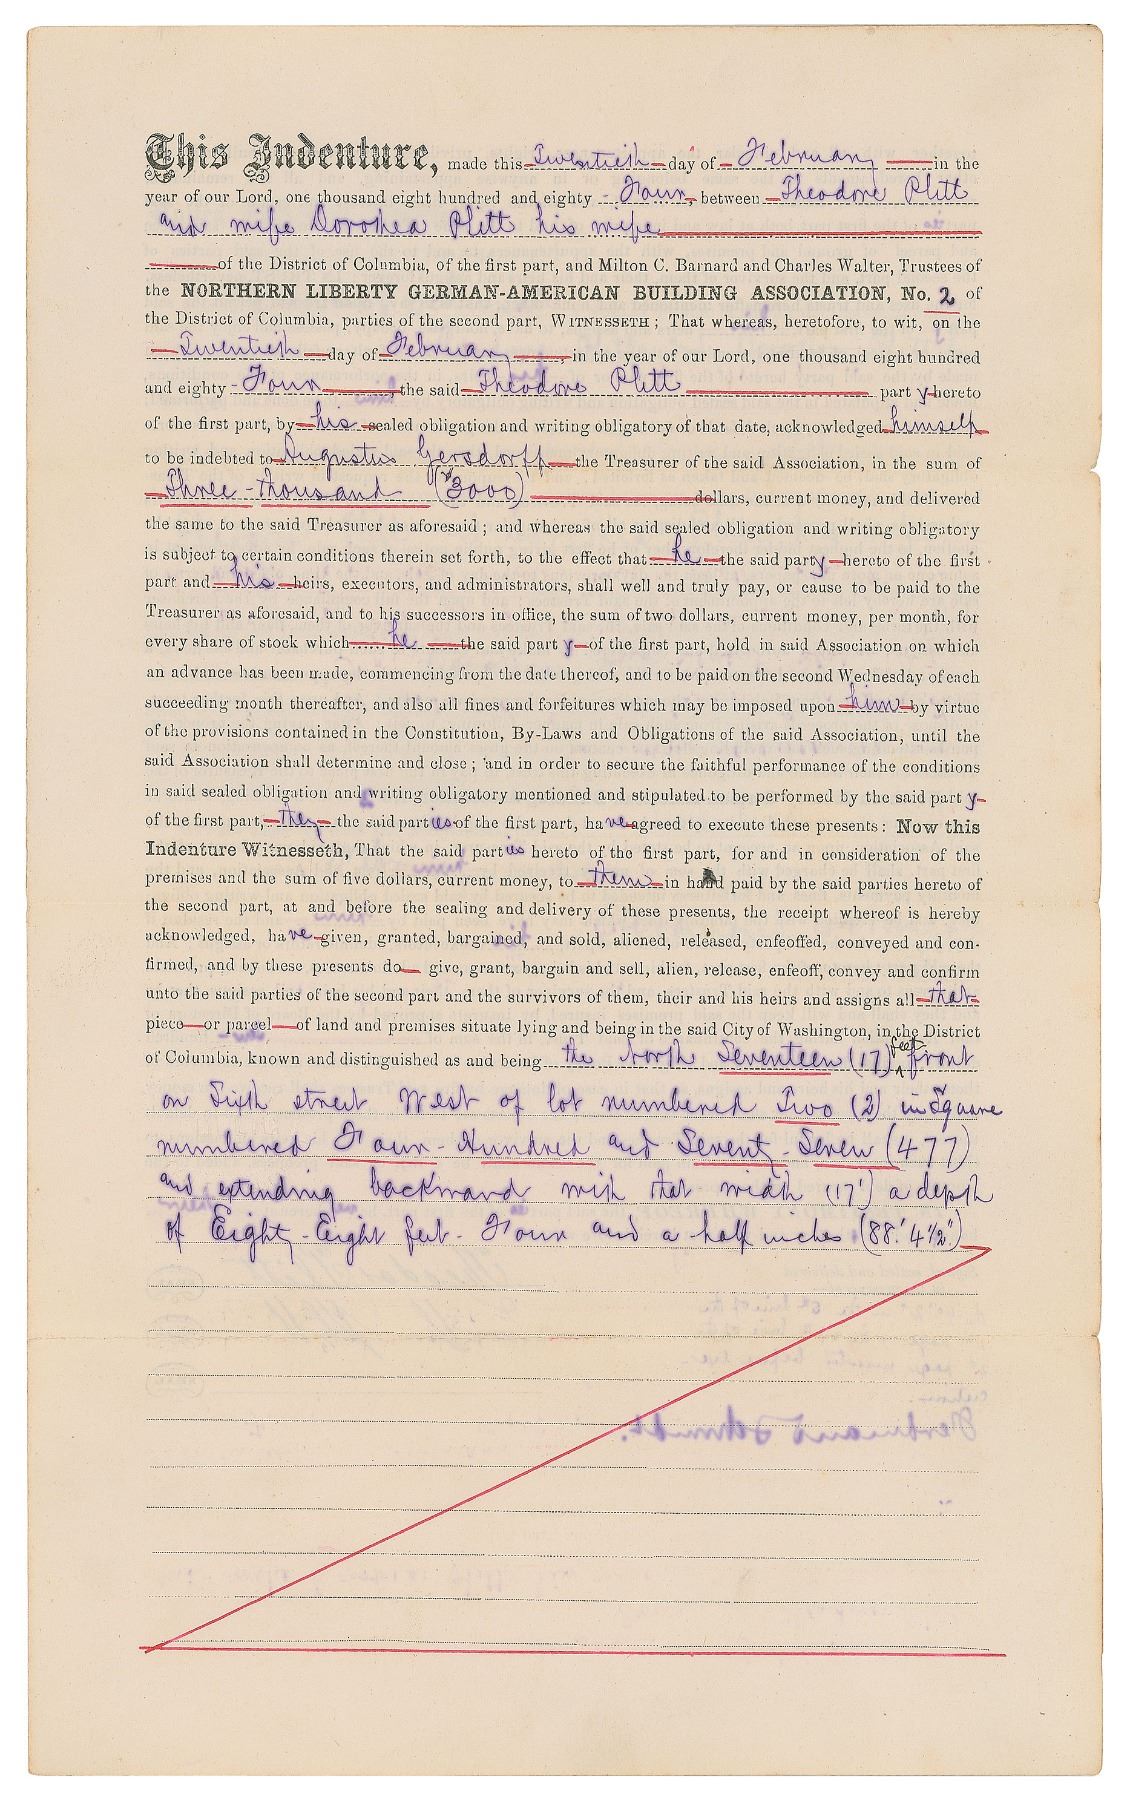 This Indenture, made this Twentieth day of February in the
year of our Lord, one thousand eight hundred and eighty - Four, between Theodore Plitt
and wife Dorothea Plitt his wife
of the District of Columbia, of the first part, and Milton C. Barnard and Charles Walter, Trustees of
the NORTHERN LIBERTY GERMAN-AMERICAN BUILDING ASSOCIATION, No. 2 of
the District of Columbia, parties of the second part, WITNESSETH; That whereas, heretofore, to wit, on the
Twentieth day of February, in the year of our Lord, one thousand eight hundred
and eighty - Four, the said Theodore Plitt party hereto
of the first part, by his sealed obligation and writing obligatory of that date, acknowledged himself
to be indebted to Augustus Gersdorff the Treasurer of the said Association, in the sum of
Three - thousand ($3000) dollars, current money, and delivered
the same to the said Treasurer as aforesaid; and whereas the said sealed obligation and writing obligatory
is subject to certain conditions therein set forth, to the effect that he the said party hereto of the first
part and his heirs, executors, and administrators, shall well and truly pay, or cause to be paid to the
Treasurer as aforesaid, and to his successors in office, the sum of two dollars, current money, per month, for
every share of stock which he the said party of the first part, hold in said Association on which
an advance has been made, commencing from the date thereof, and to be paid on the second Wednesday of each
succeeding month thereafter, and also all fines and forfeitures which may be imposed upon him by virtue
of the provisions contained in the Constitution, By-Laws and Obligations of the said Association, until the
said Association shall determine and close; and in order to secure the faithful performance of the conditions
in said sealed obligation and writing obligatory mentioned and stipulated to be performed by the said party
of the first part, they the said parties of the first part, have agreed to execute these presents: Now this
Indenture Witnesseth, That the said parties hereto of the first part, for and in consideration of the
premises and the sum of five dollars, current money, to them in hand paid by the said parties hereto of
the second part, at and before the sealing and delivery of these presents, the receipt whereof is hereby
acknowledged, have given, granted, bargained, and sold, aliened, released, enfeoffed, conveyed and con-
firmed, and by these presents do give, grant, bargain and sell, alien, release, enfeoff, convey and confirm
unto the said parties of the second part and the survivors of them, their and his heirs and assigns all that
piece or parcel of land and premises situate lying and being in the said City of Washington, in the District
of Columbia, known and distinguished as and being the North Seventeen (17) feet front
on Sixth street West of lot numbered Two (2) in Square
numbered Four - Hundred and Seventy - Seven (477)
and extending backward with that width (17') a depth
of Eighty - Eight feet - Four and a half inches (88.' 4½")
Ferdinand Schmidt.